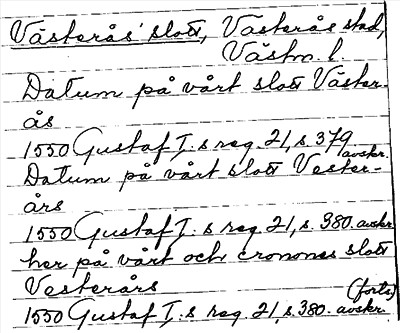 Västerås' slott, Västerås stad,
Västm. l
Datum på vårt slott Väster-
ås
1550 Gustaf I. s reg. 21, s. 379 avskr.
Datum på vårt slott Vester-
års
1550 Gustaf I. s reg. 21, s. 380. avskr.
her på vårt och cronones slott
Vesterårs (forts)
1550 Gustaf I. s reg. 21, s. 380. avskr.